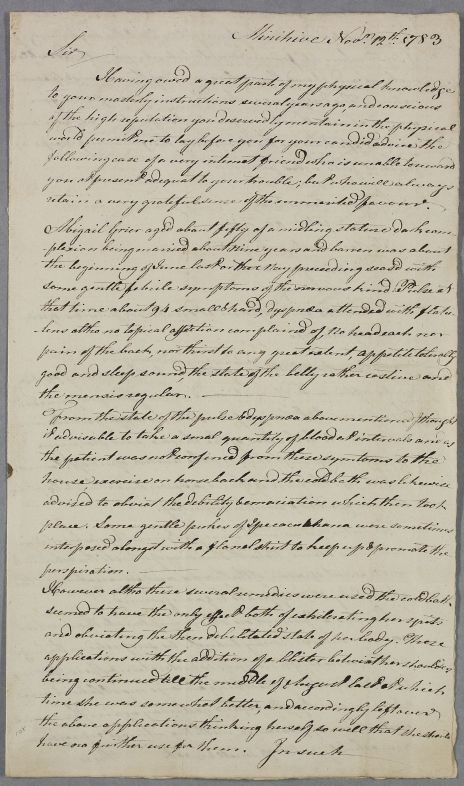 Minihive Novr. 12th. 1783
Sir
Having owed a great part of my physical knowledge
to your masterly instructions several years ago, and conscious
of the high reputation you deservedly mentain in the physical
world permit me to lay before you for your candid advice the
following case of a very intimat friend who is unable to reward
you at present adequat to your trouble, but who will always
retain a very grateful sense of the unmerited favour.
Abigail Grier aged about fifty of a midling stature dark com
plexion being married about nine years and barren was about
the beginning of June last or the May preceeding seased with
some gentle febrile symptoms of the nervous kind. Pulse at
that time about 94 small & hard, dyspnœa attended with flatu
lens altho no topical affection complained of, no headach nor
pain of the back, nor thirst to any great extent, appetite tolerably
good and sleep sound the state of the belly rather costive and
the mensis regular.
From the state of the pulse & dyspnœa abovementioned I thought
it advisable to take a smal quantity of blood at intervals and as
the patient was not confined from these symtoms to the
house exercise on horseback and the cold bath was likewise
advised to obviat the debility & emaciation which then took
place. Some gentle pukes of Ipecacuhana were sometimes
interposed alongst with a flanel shirt to keep up & promote the
perspiration.
However altho these several remedies were used the cold bath
seemed to have the only effect both of exhilerating her spirits
and obviating the then debilitated state of her body. These
applications with the addition of a blister between her shoulders
being continued till the middle of August last at which
time she was somewhat better, and accordingly left over
the above applications thinking herself so well that she should
have no further use for them. In such